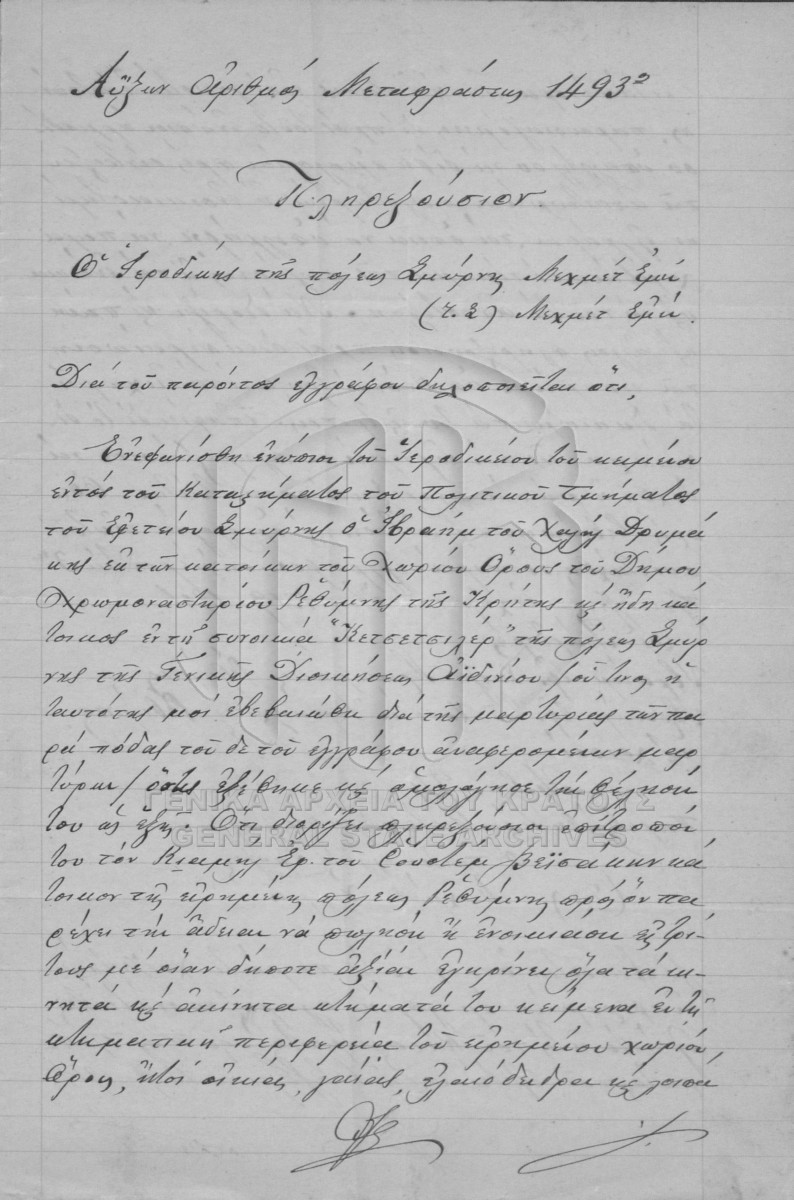 Αὔξων ἀριθμός Μεταφράσεως 1493
Πληρεξούσιον.
Ὁ Ἱεροδίκης τῆς πόλεως Σμύρνης Μεχμέτ Ἐμίν
(τ.Σ) Μεχμέτ Ἐμίν.
Διά τοῦ παρόντος ἐγγράφου δηλοποιεῖται ὅτι,
Ἐνεφανίσθη ἐνώπιον τοῦ Ἱεροδικείου τοῦ κειμένου
ἐντός τοῦ Καταστήματος τοῦ Πολιτικοῦ Τμήματος
τοῦ Ἐφετείου Σμύρνης ὁ Ἰβραήμ τοῦ Χαλήλ Δρυμά
κης ἐκ τῶν κατοίκων τοῦ Χωρίου Ὄρους τοῦ Δήμου
Χρωμοναστηρίου Ρεθύμνης τῆς Κρήτης κ ἤδη κά
τοικος ἐν τῇ συνοικίᾳ "Κετσετσιλέρ" τῆς πόλεως Σμύρ
νης τῆς Γενικῆς Διοικήσεως Ἀϊδινίου / οὗτινος ἡ
ταυτότης μοί ἐβεβαιώθη διά τῆς μαρτυρίας τῶν πα
ρά πόδας τοῦδε τοῦ ἐγγράφου ἀναφερομένων μαρ
τύρων / ὅστις ἐξέθηκε κ ὡμολόγησε τήν θέλησίν
του ὡς ἑξῆς. Ὅτι διορίζει πληρεξούσιον ἐπίτροπόν
του τόν Κιαμήλ Ἐφ. τοῦ Ρουστέμ Βεϊσάκην κά
τοικον τῆς εἰρημένης πόλεως Ρεθύμνης πρός ὅν πα
ρέχει τήν ἄδειαν νά πωλήσῃ ἤ ἐνοικιάσῃ εἰς τρί-
τους μέ οἵαν δήποτε ἀξίαν ἐγκρίνει ὅλα τά κι-
νητά κ ἀκίνητα κτήματά του κείμενα ἐν τῇ
κτηματικῇ περιφερείᾳ τοῦ εἰρημένου χωρίου,
Ὄρους, ἤτοι οἰκίας, γαίας, ἐλαιόδενδρα κ λοιπά
ΓΕΝΙΚΑ ΑΡΧΕΙΑ ΤΟΥ ΚΡΑΤΟΥΣ
GENERAL STATE ARCHIVES